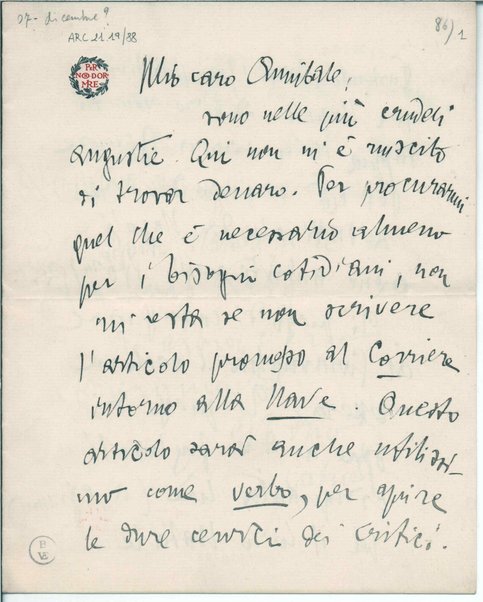 07- dicembre?
86) 1
ARC 21 19/88
PER
NON DOR
MIRE
Mio caro Annibale,
sono nelle più crudeli
angustie. Qui non mi è riuscito
di trovar denaro. Per procurarmi
quel che è necessario almeno
per i bisogni cotidiani, non
mi resta se non scrivere
l'articolo promesso al Corriere
intorno alla Nave. Questo
articolo sarà anche utilissi-
mo come verbo, per aprire
le dure cervici dei critici.
B
VE